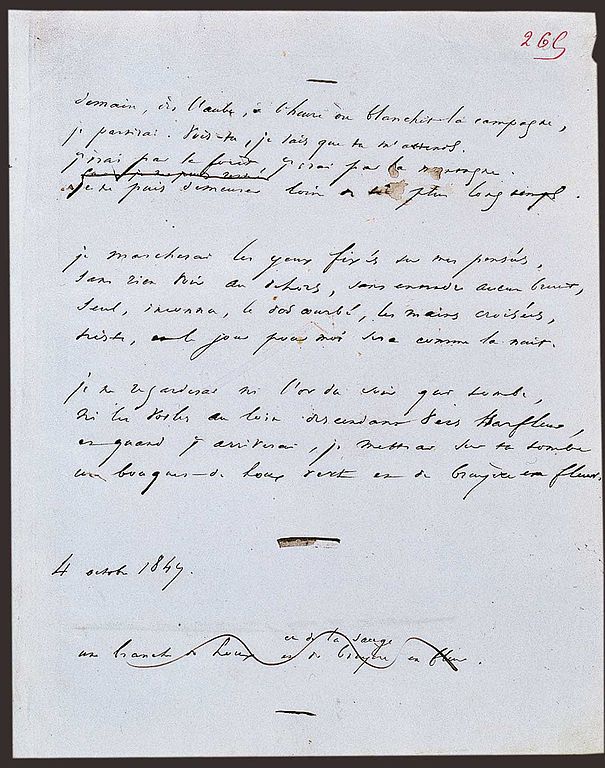 265
Demain, dès l'aube, à l'heure où blanchit la campagne,
je partirai. Vois-tu, je sais que tu m'attends.
J'irai par la forêt, j'irai par la montagne.
Je ne puis demeurer loin de toi plus longtemps.
je marcherai les yeux fixés sur mes pensées,
sans rien voir au dehors, sans entendre aucun bruit,
Seul, inconnu, le dos courbé, les mains croisées,
triste, et le jour pour moi sera comme la nuit.
je ne regarderai ni l'or du soir qui tombe,
ni les voiles au loin descendant vers Harfleur,
et quand j'arriverai, je mettrai sur ta tombe
un bouquet de houx vert et de bruyère en fleur.
4 octobre 1847.
et de la sauge
une branche de houx et de bruyère en fleur.